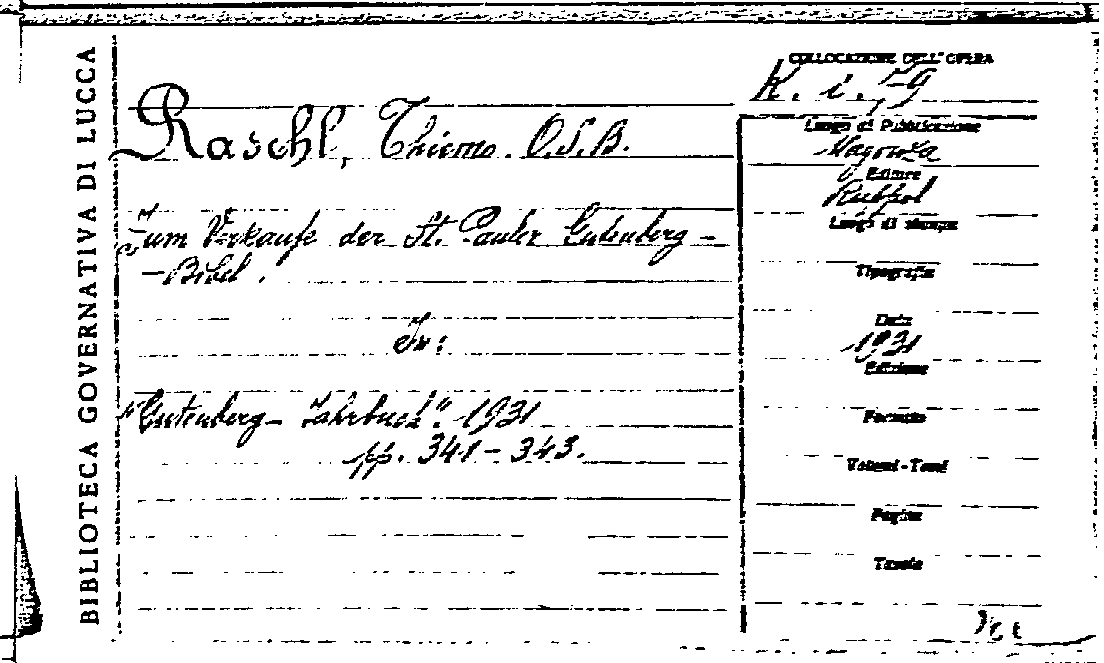 BIBLIOTECA GOVERNATIVA DI LUCCA
COLLOCAZIONE DELL'OPERA
K. i. 79
Raschl, Thiemo. O.S.B.
Zum Verkaufe der St. Pauler Gutenberg-
-Bibel.
In:
"Gutenberg-Jahrbuch". 1931
pp. 341-343.
Luogo di Pubblicazione
Magonza
Editore
Ruppel
Luogo di stampa
Tipografia
Data
1931
Edizione
Formato
Volumi-Tomi
Pagine
Tavole